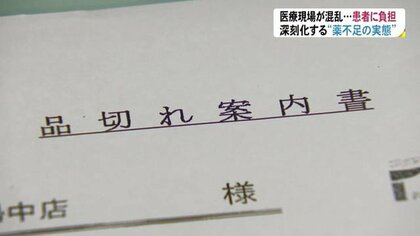 医療現場が混乱…患者に負担
深刻化する“薬不足の実態”
品切れ案内書
中店 様